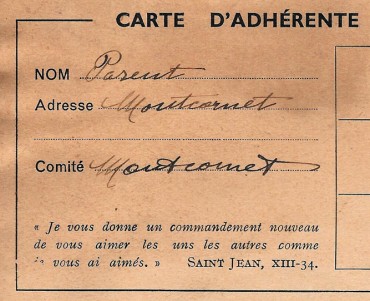 CARTE D'ADHÉRENTE
NOM Parent
Adresse Montcornet
Comité Montcornet
« Je vous donne un commandement nouveau
de vous aimer les uns les autres comme
je vous ai aimés. » SAINT JEAN, XIII-34.